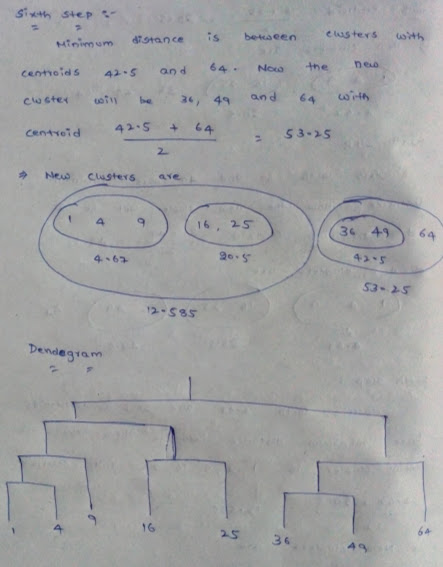 Sixth Step :-
Minimum distance is between clusters with
centroids 42.5 and 64. Now the new
cluster will be 36, 49 and 64 with
centroid 42.5 + 64 / 2 = 53.25
⇒ New clusters are
1 4 9 16, 25 36, 49 64
4.67 20.5 42.5
53.25
12.585
Dendegram
1 4 9 16 25 36 49 64